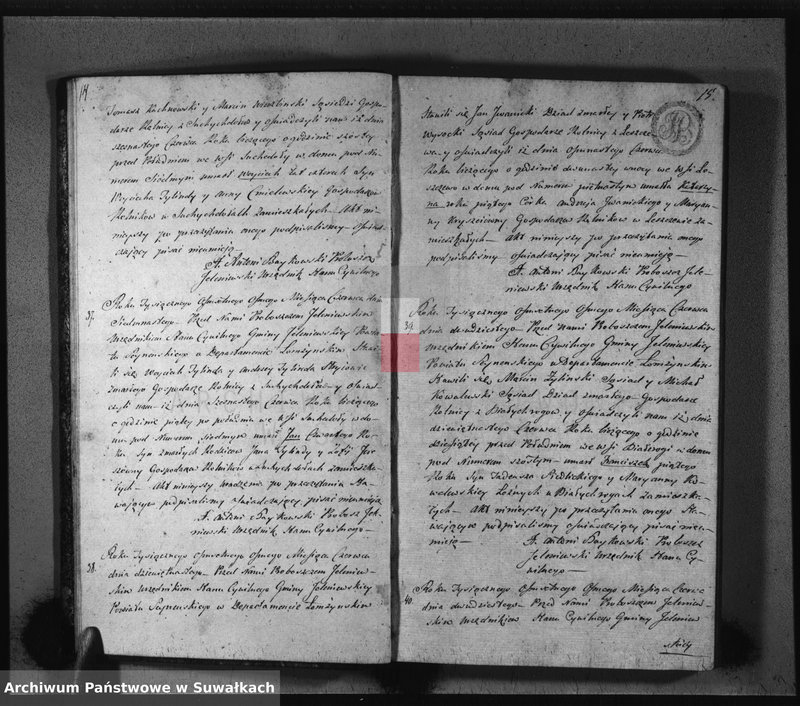 14
Tomasz Kuchnowski y Marcin Sąsiedzi Gospo-
darze Rolnicy z Suchychdołów y oświadczyli nam iż dnia
szesnastego Czerwca Roku bieżącego o godzinie szóstey
przed Południem we wsi Suchodoły w domu pod Nu-
merem Siódmym umarł Woyciech Lat czterech Syn
Woyciecha Zylindy y Anny Gospodarzów
Rolników w Suchychdołach Zamieszkałych – Akt ni-
nieyszy po przeczytaniu onego podpisaliśmy Oświad-
czający pisać nieumieją
X. Antoni Baykowski Proboszcz
Jeleniewski Urzędnik Stanu Cywilnego
37. Roku Tysiącznego Ośmsetnego Osmego Miesiąca Czerwca dnia
Siedmnastego – Przed Nami Proboszczem Jeleniewskim
Urzędnikiem Stanu Cywilnego Gminy Jeleniewskiey Powia-
tu Seynenskiego w Departamencie Łomżyńskim Stawi-
li się Woyciech Zylinda y Andrzey Zylinda Stryiowie
zmarłego Gospodarze Rolnicy z Suchychdołów – y oświad-
czyli nam iż dnia Szesnastego Czerwca Roku bieżącego
o godzinie piątey po południu we wsi Suchodoły w do-
mu pod Numerem Siódmym umarł Jan Czwartego Ro-
ku Syn zmarłych Rodziców Jana Zylindy y Zofii
Gospodarzów Rolników w Suchychdołach zamieszka-
łych – Akt ninieyszy po przeczytaniu Sta-
wającym podpisaliśmy oświadczający pisać nieumieją
X. Antoni Baykowski Proboszcz Jele-
niewski Urzędnik Stanu Cywilnego –
38. Roku Tysiącznego Ośmsetnego Osmego Miesiąca Czerwca
dnia dziewiętnastego – Przed Nami Proboszczem Jeleniew-
skim Urzędnikiem Stanu Cywilnego Gminy Jeleniewskiey
Powiatu Seynenskiego w Departamencie Łomżyńskim
15.
Stawili się Jan Iwanicki Dziad zmarłey y Piotr
Wysocki Sąsiad Gospodarze Rolnicy z Leszcze-
wa y oświadczyli iż dnia Osmnastego Czerwca
Roku bieżącego o godzinie dwunastey w nocy we wsi Le-
szczewo w domu pod Numerem piętnastym umarła Katarzy-
na roku piątego Córka Andrzeja Iwanickiego y Maryan-
ny Gospodarzów Rolników w Leszczewie za-
mieszkałych – Akt ninieyszy po przeczytaniu onego
podpisaliśmy oświadczający pisać nieumieją –
X. Antoni Baykowski Proboszcz Jele-
niewski Urzędnik Stanu Cywilnego
39. Roku Tysiącznego Ośmsetnego Osmego Miesiąca Czerwca
dnia dwudziestego – Przed Nami Proboszczem Jeleniewskim
Urzędnikiem Stanu Cywilnego Gminy Jeleniewskiey
Powiatu Seynenskiego w Departamencie Łomżyńskim
Stawili się Marcin Żyliński Sąsiad y Michał
Kowalewski Sąsiad Dziad zmarłego – Gospodarze
Rolnicy z Białychrogów y oświadczyli nam iż dnia
dziewiętnastego Czerwca Roku bieżącego o godzinie
dziesiątey przed Południem we wsi Białerogi w domu
pod Numerem szóstym – umarł Franciszek piątego
Roku Syn Tadeusza y Maryanny Ko-
walewskiey w Białychrogach zamieszka-
łych – Akt ninieyszy po przeczytaniu onego Sta-
wającym podpisaliśmy oświadczający pisać nieu-
mieją –
X. Antoni Baykowski Proboszcz
Jeleniewski Urzędnik Stanu Cy-
wilnego –
40. Roku Tysiącznego Ośmsetnego Osmego Miesiąca Czerwca
dnia dwudziestego – Przed Nami Proboszczem Jeleniew-
skim Urzędnikiem Stanu Cywilnego Gminy Jeleniew-
skiey
Archiwum Państwowe w Suwałkach